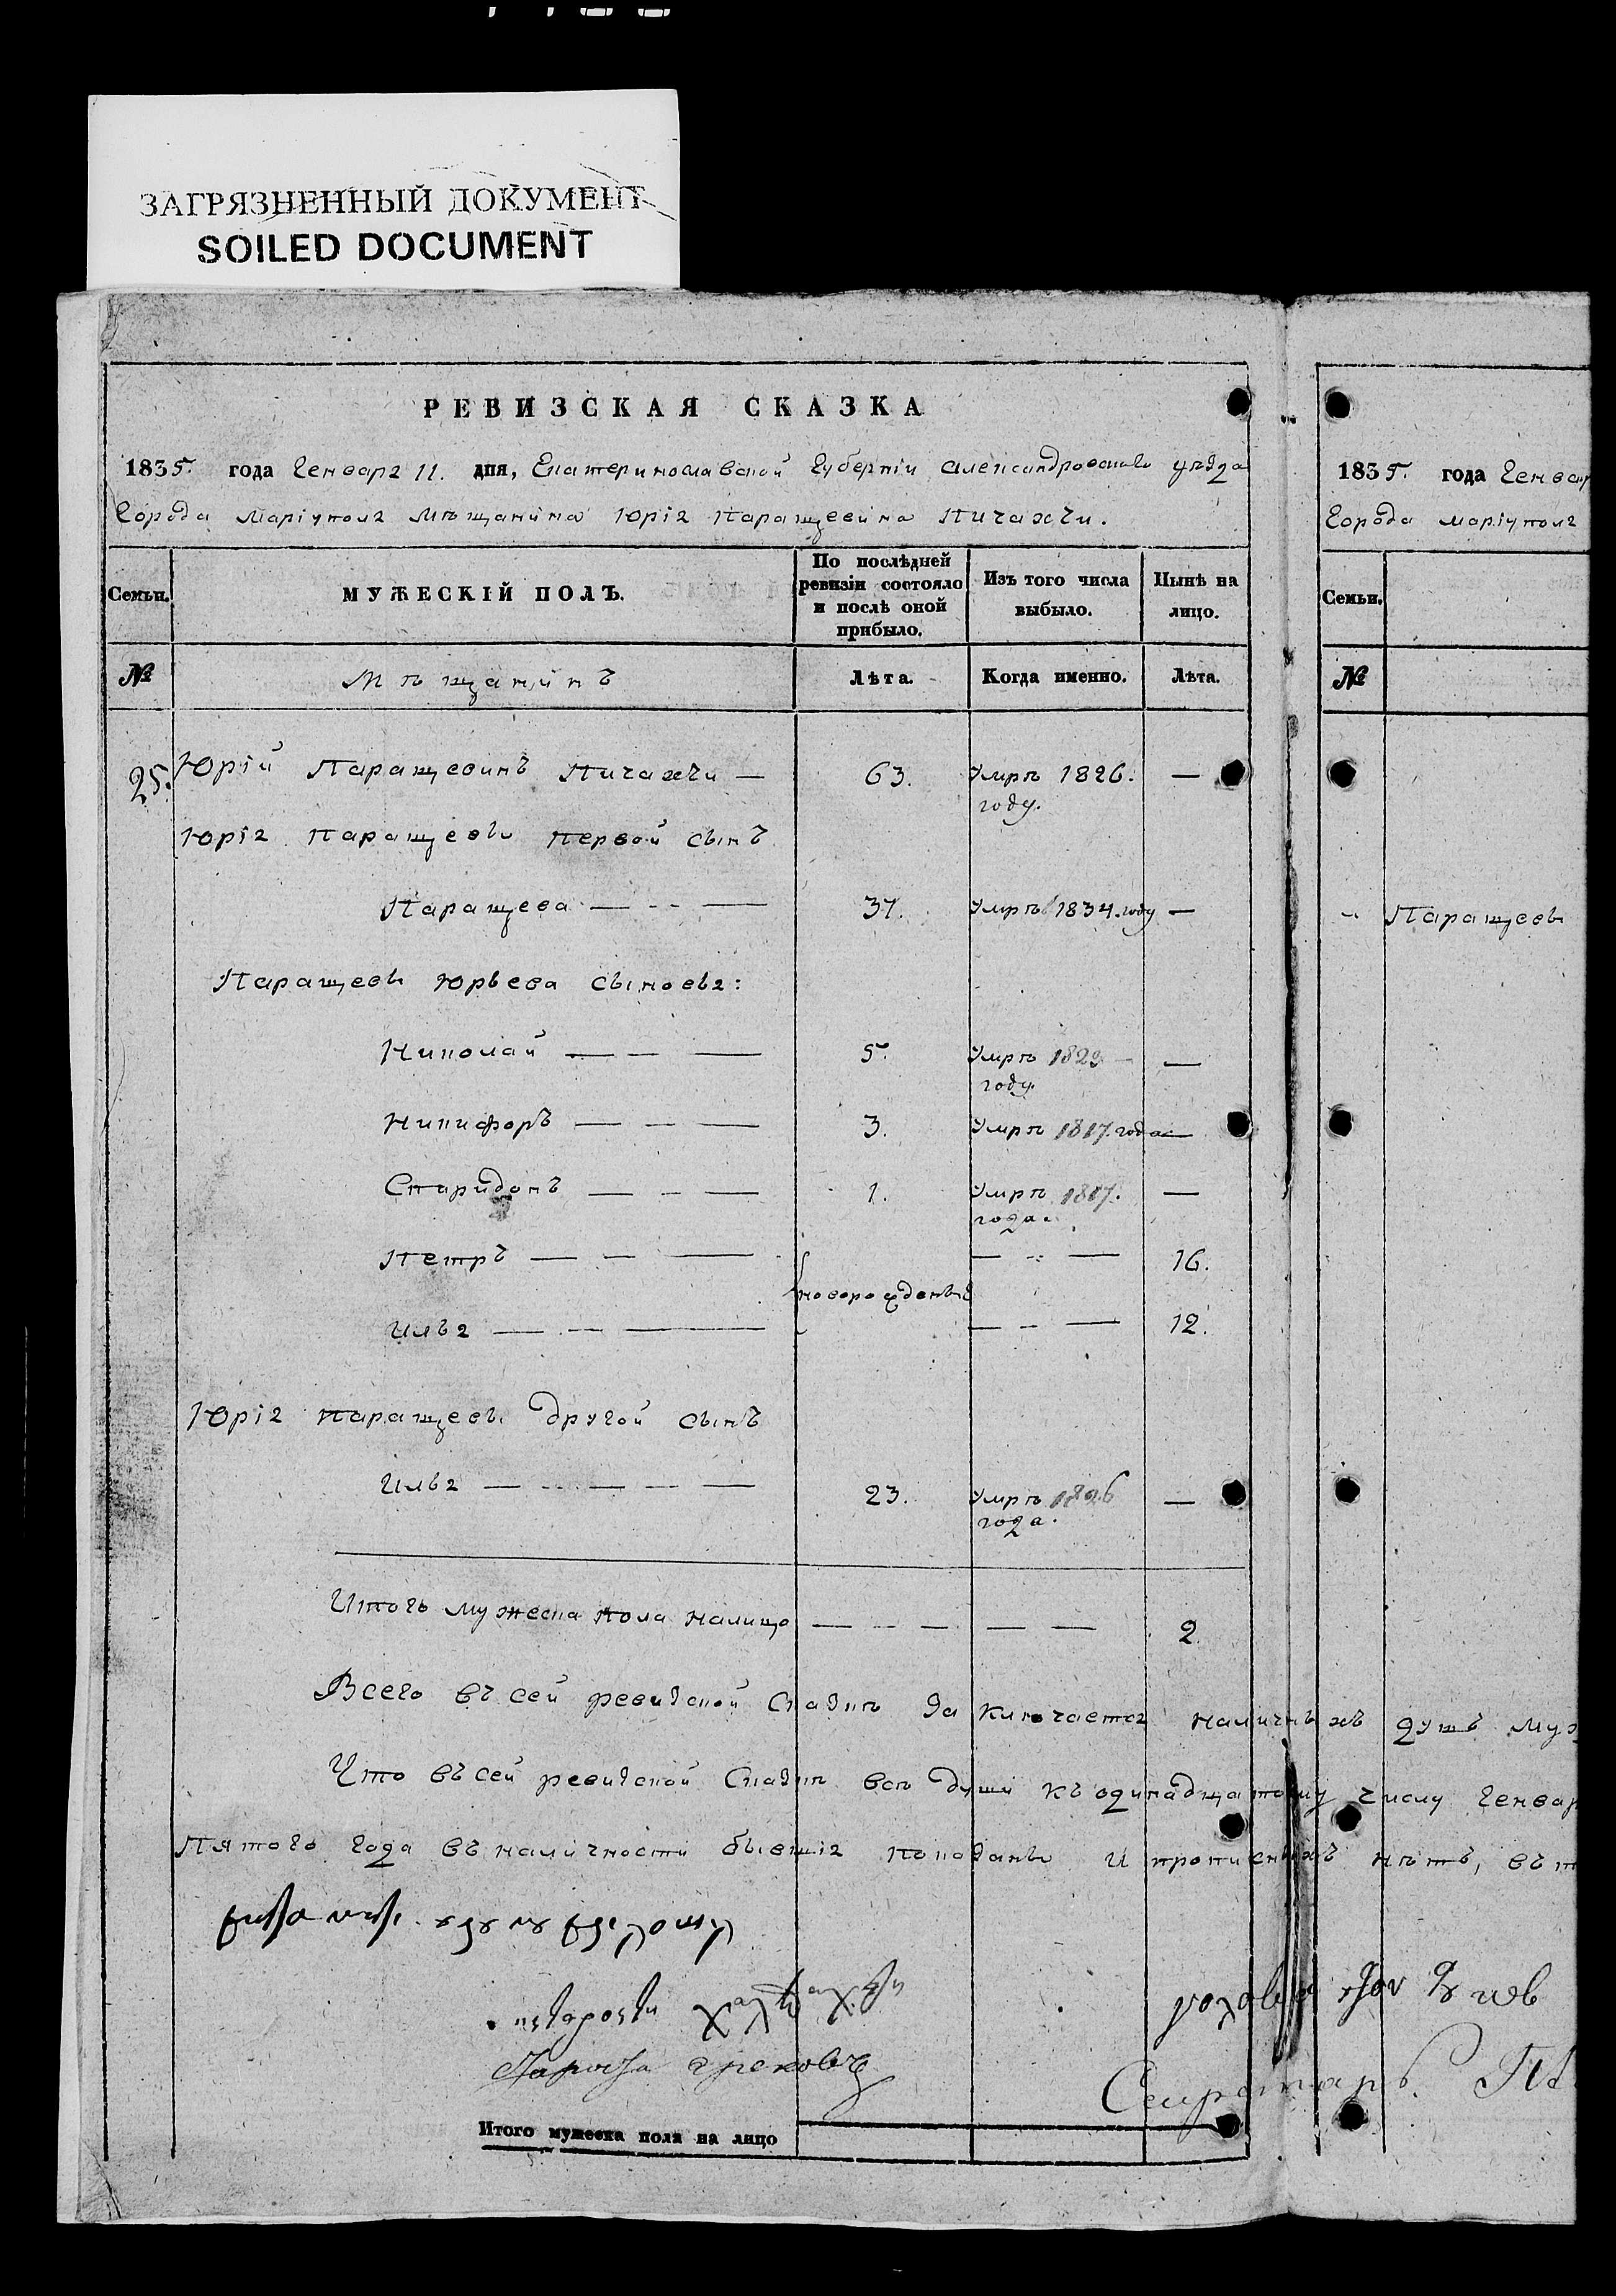 ЗАГРЯЗНЕННЫЙ ДОКУМЕНТ
SOILED DOCUMENT
РЕВИЗСКАЯ СКАЗКА
1835. года Генваря 11. дня, Екатеринославской Губерніи Александровскаго уезда
Города Маріуполя Мѣщанина Юрія Паращевина Пичахчи.
Семьи.
МУЖЕСКІЙ ПОЛЪ.
По послѣдней ревизіи состояло и послѣ оной прибыло.
Изъ того числа выбыло.
Нынѣ на лицо.
№
Мѣщанинъ
Лѣта.
Когда именно.
Лѣта.
25. Юрій Паращевинъ Пичахчи — 63. Умрѣ 1826. году. —
Юрія Паращевы первой сынъ
Паращева — 37. Умрѣ 1834. году —
Паращевы Юрьева сыновья:
Николай — 5. Умрѣ 1823 году —
Никифоръ — 3. Умрѣ 1817. года —
Спиридонъ — 1. Умрѣ 1817. года. —
Петръ — новорожденые — 16.
Илья — 12.
Юрія Паращевы другой сынъ
Илья — 23. Умрѣ 1826 года. —
Итого мужеска пола налицо — 2.
Всего въ сей ревизской сказкѣ заключается наличныхъ душъ муж
Что въ сей ревизской сказкѣ всѣ души къ одинадцатому числу Генвар
Пятого года въ наличности бывшія показаны и прописныхъ нѣтъ, въ т
Староста Грековъ
Секретарь
Итого мужеска пола на лицо
1835. года Генвар
Города Маріуполя
Семьи.
№
Паращевы